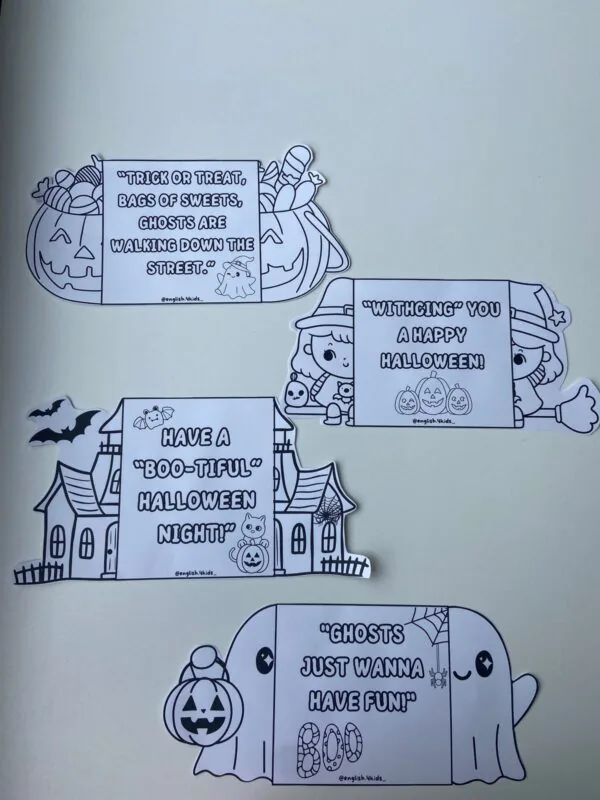 "TRICK OR TREAT,
BAGS OF SWEETS,
GHOSTS ARE
WALKING DOWN THE
STREET."
@english.4kids_
"WITHCING" YOU
A HAPPY
HALLOWEEN!
@english.4kids_
HAVE A
"BOO-TIFUL"
HALLOWEEN
NIGHT!"
@english.4kids_
"GHOSTS
JUST WANNA
HAVE FUN!"
BOO
@english.4kids_